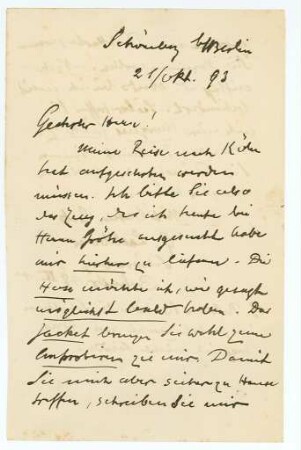 Schöneberg b/Berlin
21/Okt. 93
Geehrter Herr!
Meine Reise nach Köln
hat aufgeschoben werden
müssen. Ich bitte Sie also
das Zeug, das ich heute bei
Herrn ausgesucht habe
mir hierher zu liefern. Die
Hose möchte ich, wie gesagt
möglichst bald haben. Das
Jacket bringen Sie wohl zum
Anprobiren zu mir. Damit
Sie mich aber sicher zu Hause
treffen, schreiben Sie mir